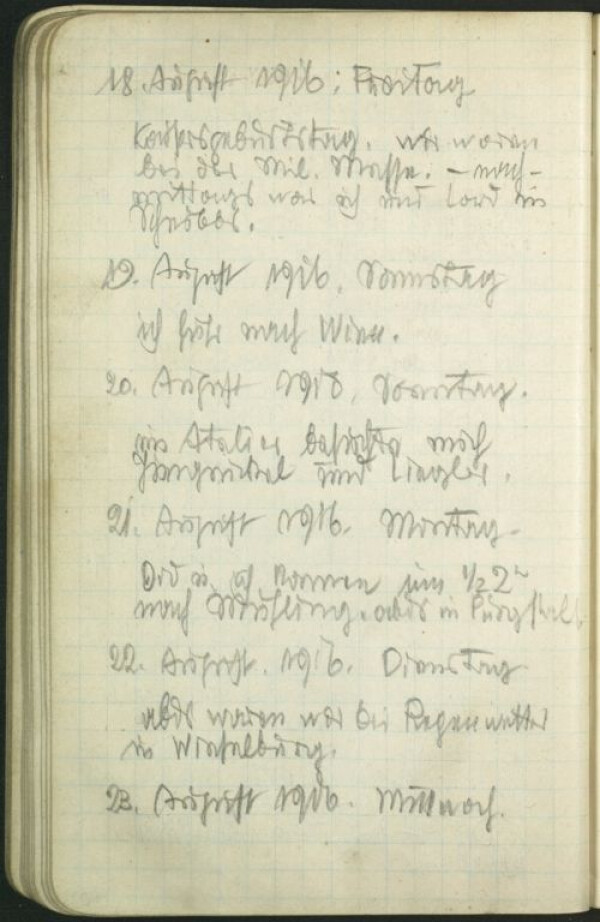 18. August 1916; Freitag
Kaisersgeburtstag. wir waren
bei der Mil. Messe. – nach-
mittags war ich und Lord in
Scheibbs.
19. August 1916. Samstag
ich fuhr nach Wien.
20. August 1916, Sonntag.
im Atelier besuchte mich
Jungnickel und Liegler.
21. August 1916. Montag.
Did u. ich kommen um 1/2 2h
nach Mühling. abds in Purgstall
22. August. 1916. Dienstag
abds waren wir bei Regenwetter
in Wieselburg.
23. August 1916. Mittwoch.